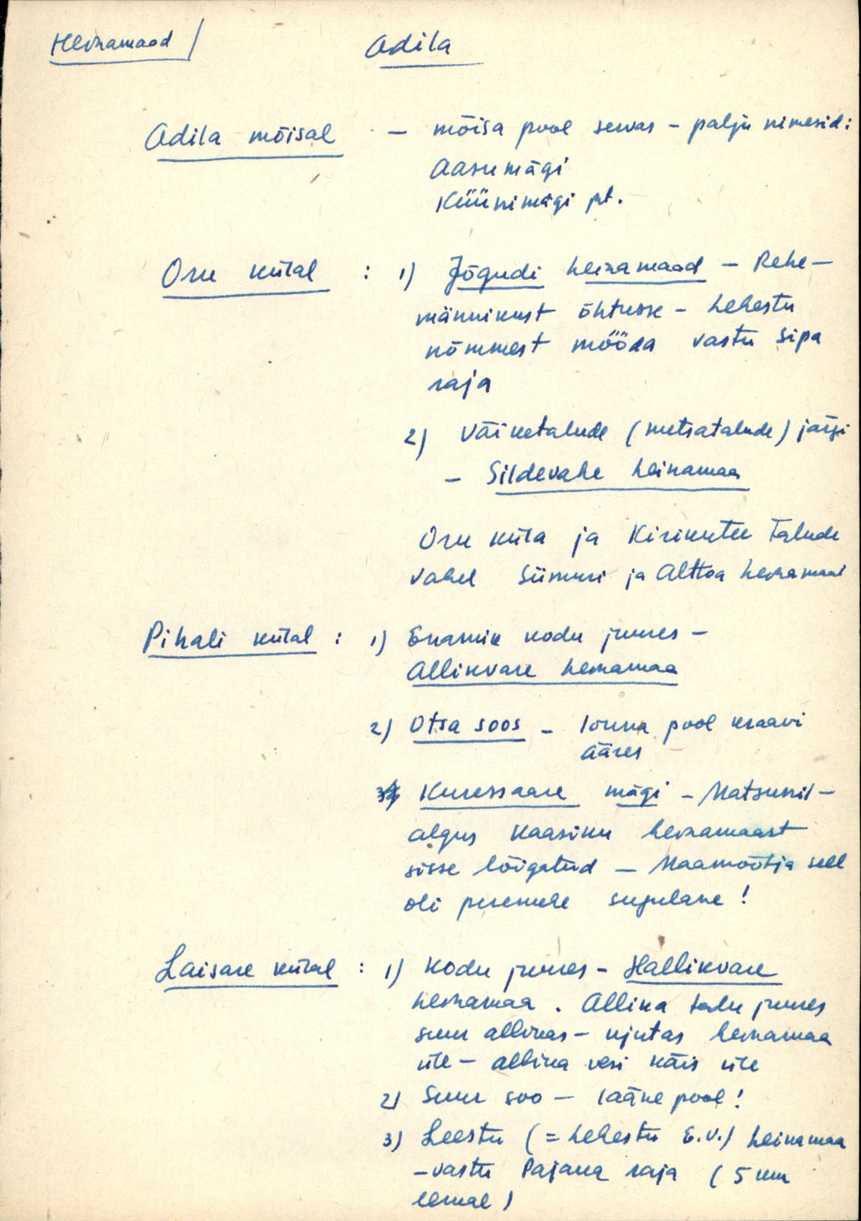 Heinamaad / Adila
Adila mõisal - mõisa pool servas - palju nimesid:
Aasumägi
Küünimägi jt.
Oru külal : 1) Jõgudi heinamaad - Rehe-
männikust õhtusse - Lehestu
nõmmest mööda vastu Sipa
raja
2) Väiketalude (metsatalude) järgi
- Sildevahe heinamaa
Oru küla ja Kirikutee talude
vahel Siimuri ja Alttoa heinamaad
Pihali külal : 1) Enamik kodu juures -
Allikvare heinamaa
2) Otsa soos - lõuna pool kraavi
ääres
3) Kuressaare mägi -
algus Kaasiku heinamaast
sisse lõigatud - Maamõõtja sell
oli peremehe sugulane !
Laisare külal : 1) Kodu juures - Hallikvare
heinamaa . Allika talu juures
suur allikas - ujutas heinamaa
üle - allika vesi käis üle
2) Suur soo - lääne pool !
3) Leestu (= Lehestu E.V.) heinamaa
- vastu Pajaka raja (5 km
eemal)